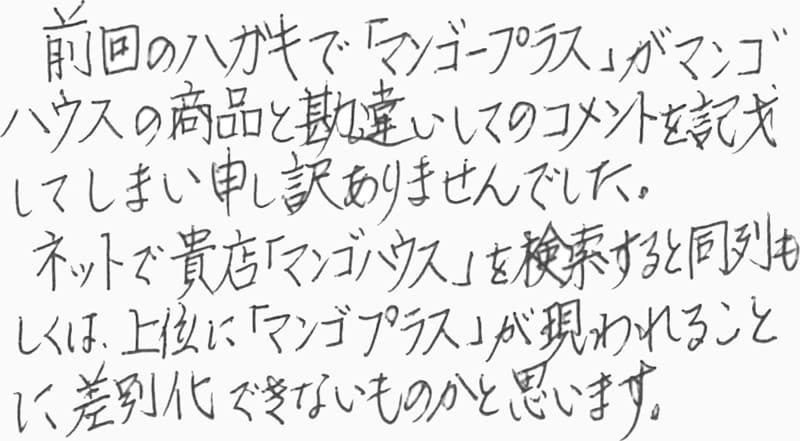 前回のハガキで「マンゴープラス」がマンゴ
ハウスの商品と勘違いしてのコメントを記し
してしまい申し訳ありませんでした。
ネットで貴店「マンゴハウス」を検索すると同列も
しくは、上位に「マンゴプラス」が現われること
に差別化できないものかと思います。